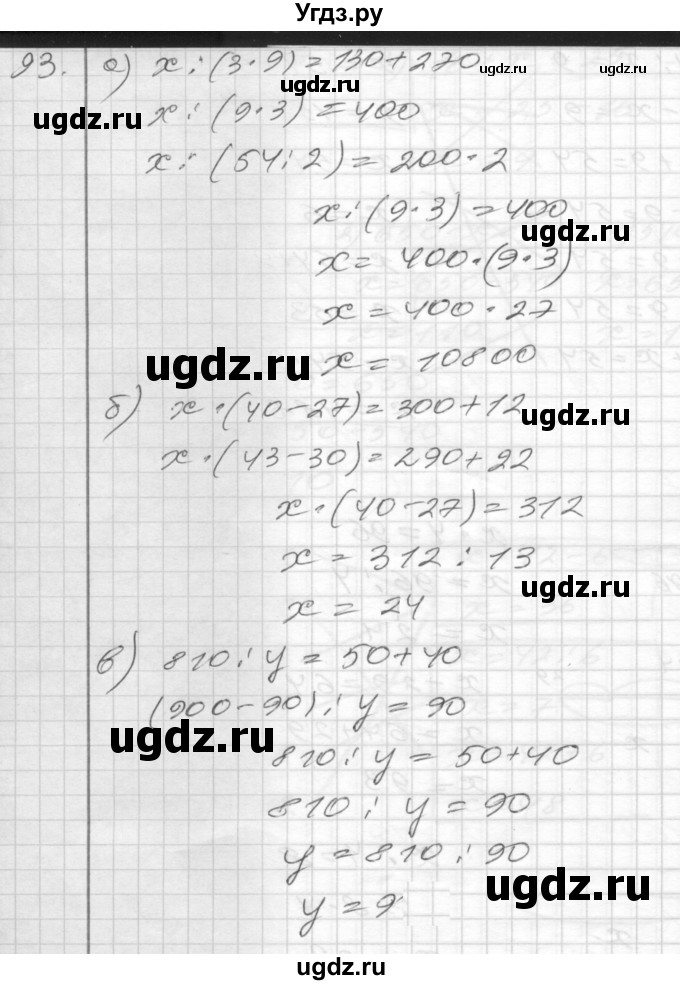 Угдз.ру
93. а) x : (3·9) = 130+270
ugdz.ru
ugdz.ru
ugdz.ru
x : (9·3) = 400
x : (54:2) = 200·2
x : (9·3) = 400
ugdz.ru
x = 400·(9·3)
x = 400·27
x = 10800
ugdz.ru
б) x·(40-27) = 300+12
ugdz.ru
x·(43-30) = 290+22
x·(40-27) = 312
x = 312 : 13
ugdz.ru
x = 24
в) 810 : y = 50+40
(900-90) : y = 90
ugdz.ru
810 : y = 50+40
810 : y = 90
y = 810 : 90
ugdz.ru
y = 9
ugdz.ru